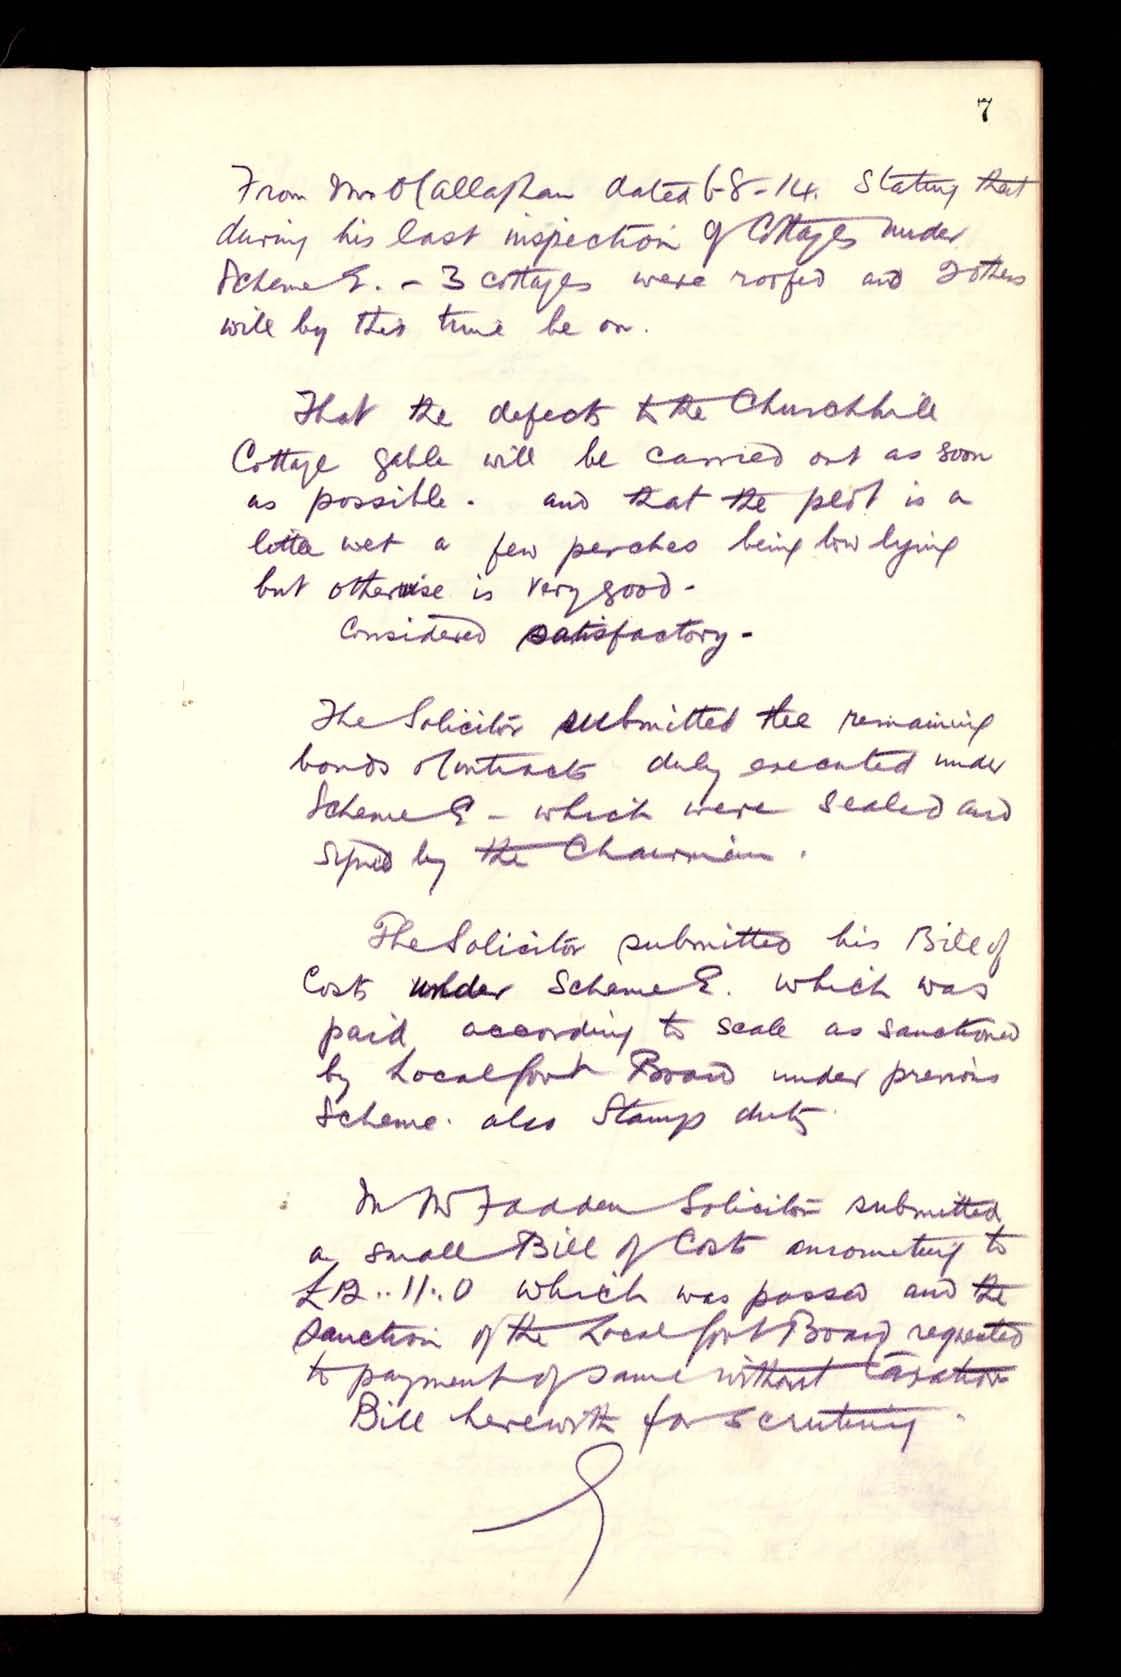 7
From Mr O'Callaghan dated 6-8-14. Stating that
during his last inspection of Cottages under
Scheme E. - 3 cottages were roofed and 2 others
will by this time be on.
That the defects to the Churchhill
Cottage gable will be carried out as soon
as possible. and that the plot is a
little wet a few perches being low lying
but otherwise is very good -
Considered satisfactory -
The Solicitor submitted the remaining
bonds & Contracts duly executed under
Scheme E - which were Sealed and
Signed by the Chairman.
The Solicitor submitted his Bill of
Costs under Scheme E. which was
paid according to scale as sanctioned
by Local Govt Board under previous
Scheme. also Stamp duty
Mr McFadden Solicitor submitted
a small Bill of Costs amounting to
11..0 which was passed and the
sanction of the Local Govt Board requested
to payment of same without taxation
Bill herewith for scrutiny.